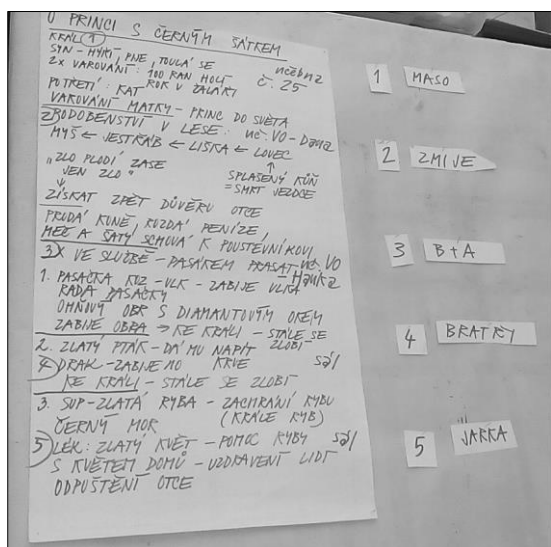 O PRINCI S ČERNÝM ŠÁTKEM
KRÁL 1
SYN - HÝŘÍ, PNE, TOULÁ SE
2x VAROVÁNÍ: 100 RAN HOLÍ
ROK V ŽALÁŘI
učebna
č. 25
POTŘETÍ: KAT
VAROVÁNÍ MATKY - PRINC DO SVĚTA
2 PODOBENSTVÍ V LESE: uč. VO - Dana
MYŠ ← JESTŘÁB ← LIŠKA ← LOVEC
"ZLO PLODÍ ZASE
JEN ZLO"
SPLAŠENÝ KŮŇ
= SMRT JEZDCE
ZÍSKAT ZPĚT DŮVĚRU OTCE
PRODÁ KONĚ ROZDÁ PENÍZE,
MEČ A ŠATY SCHOVÁ K POUSTEVNÍKOVI
3X VE SLUŽBĚ - PASÁKEM PRASAT - uč. VO
Hanka
1. PASAČKA KOZ - VLK - ZABIJE VLKA
RADA PASAČKY
OHŇOVÝ OBR S DIAMANTOVÝM OKEM
ZABIJE OBRA → KE KRÁLI - STÁLE SE
ZLOBÍ
2. ZLATÝ PTÁK - DÁ MU NAPÍT
KRVE
sál
4 DRAK - ZABIJE HO
KE KRÁLI - STÁLE SE ZLOBÍ
3. SUP - ZLATÁ RYBA - ZACHRÁNÍ RYBU
(KRÁLE RYB)
ČERNÝ MOR
5 LÉK: ZLATÝ KVĚT - POMOC RYBY sál
S KVĚTEM DOMŮ - UZDRAVENÍ LIDÍ
ODPUŠTĚNÍ OTCE
1 MASO
2 ZMIJE
3 B + A
4 BRATRY
5 JARKA